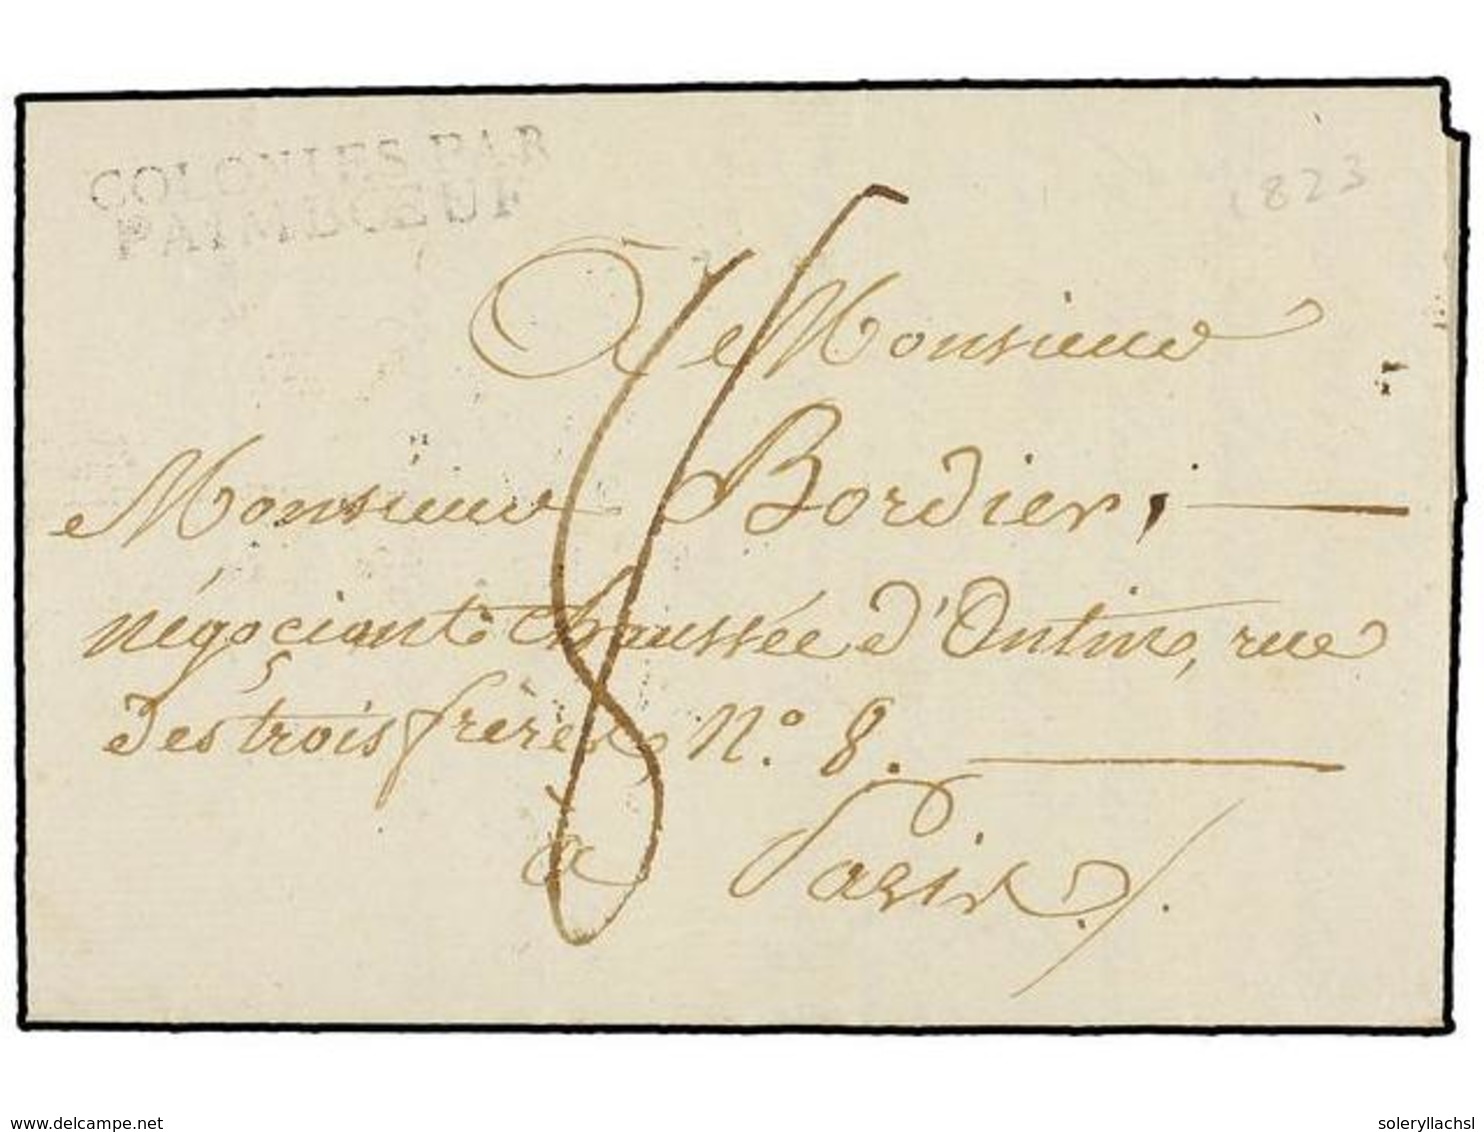 COLONIES PAR
PAIMBŒUF
1823
A Monsieur
Monsieur Bordier,
négociant chaussée d'Antin, rue
des trois frères, N.° 8.
à Paris
8
www.delcampe.net
soleryllachsl